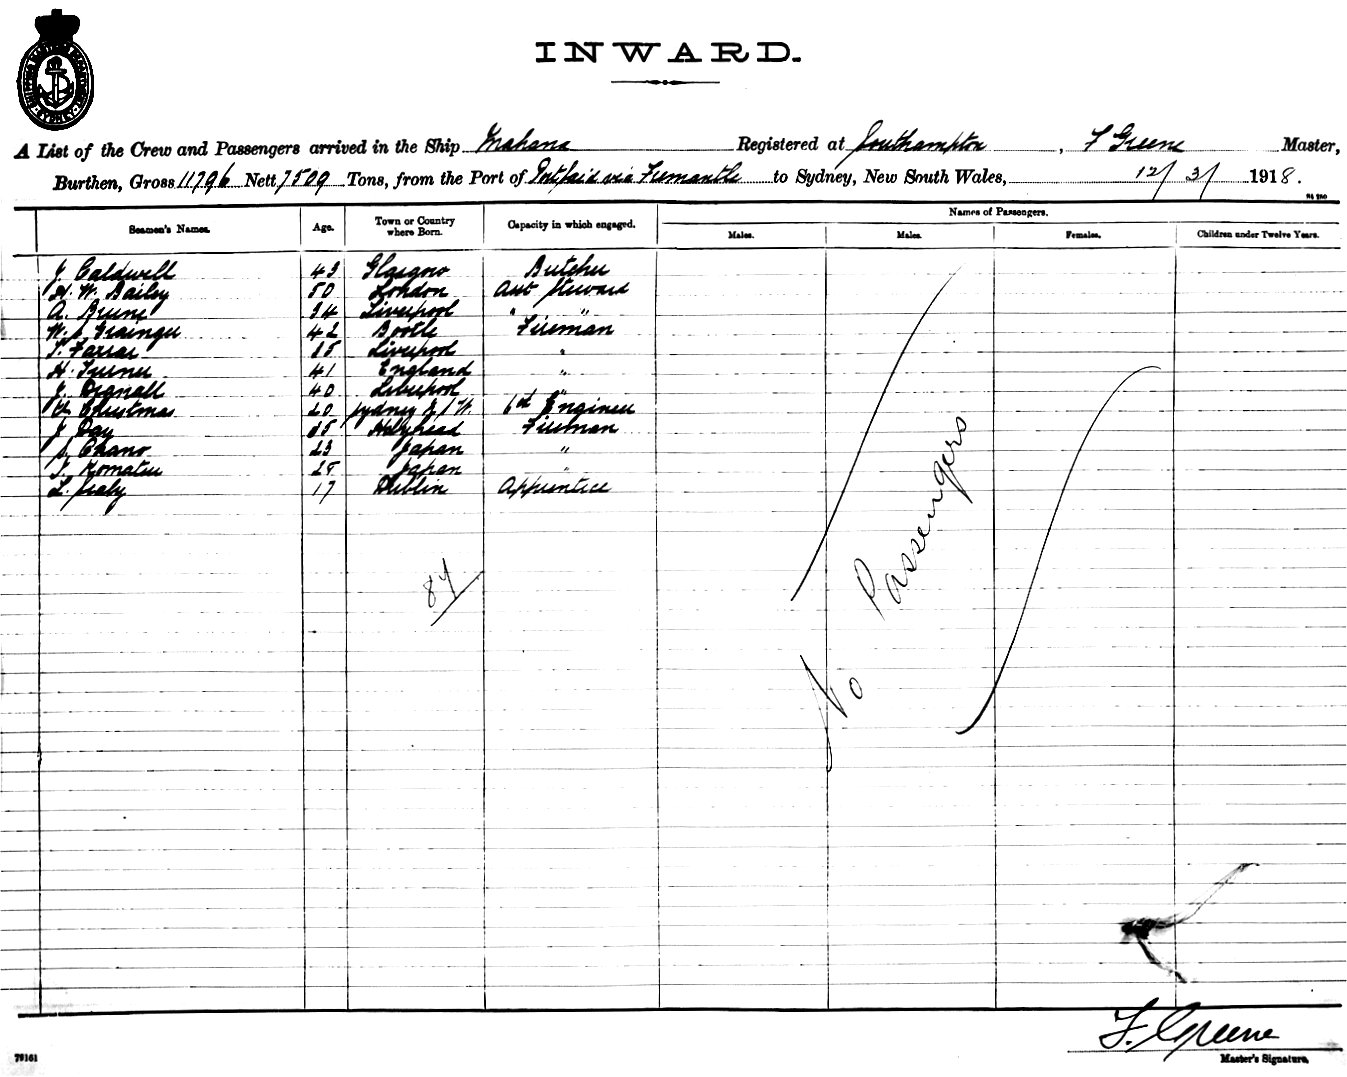 INWARD.
A List of the Crew and Passengers arrived in the Ship Mahana Registered at Southampton, F Greene Master,
Burthen, Gross 11796 Nett 7509 Tons, from the Port of Port Said via Fremantle to Sydney, New South Wales, 12/3/1918.
Seamen's Names. Age. Town or Country where Born. Capacity in which engaged. Names of Passengers.
Males. Males. Females. Children under Twelve Years.
J. Caldwell 43 Glasgow Butcher
H. W. Bailey 50 London Asst Steward
A. Brune 34 Liverpool " "
W. S. Grainger 42 Bootle Fireman
T. Farrar Liverpool "
H. Turner 41 England "
J. Dignall 40 Liverpool "
Christmas 20 Sydney N.S.W. 6th Engineer
J Day Holyhead Fireman
S. Chano 23 Japan "
T. Komatsu Japan "
L. Italy 17 Dublin Apprentice
84
No Passengers
F. Greene
Master's Signature.
79161